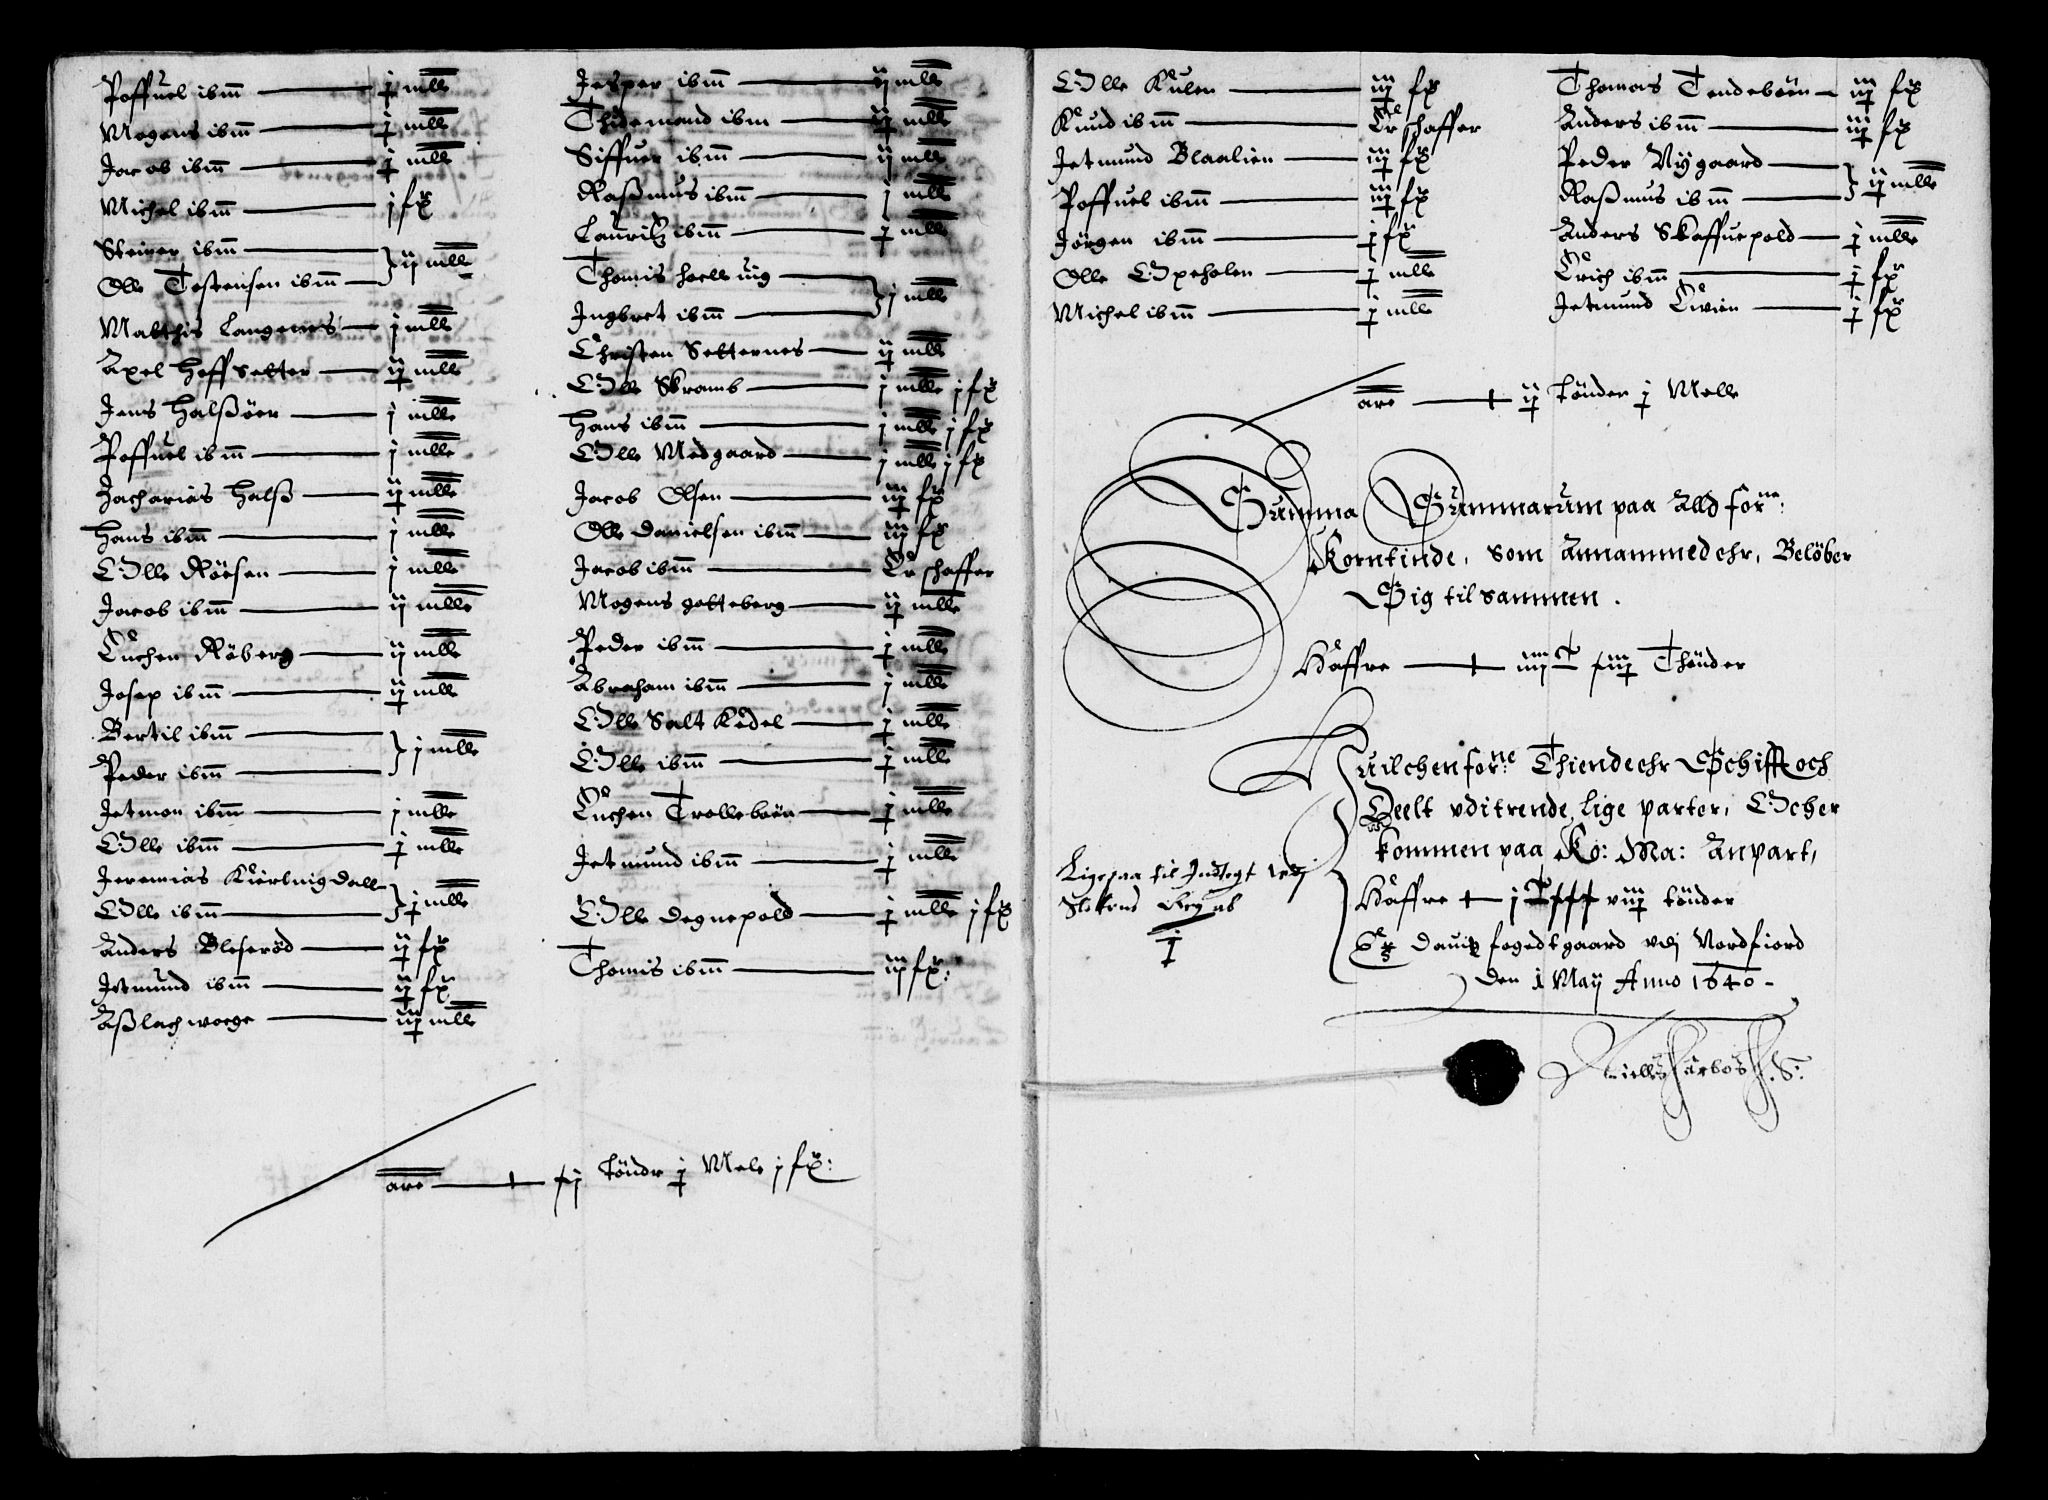 Poffuel ibm̅ — j mlle
Mogens ibm̅ — j mlle
Jacob ibm̅ — j mlle
Michel ibm̅ — j fx
Steiner ibm̅ —
Olle Testensen ibm̅ — } ij mlle
Matthis Langenes — j mlle
Axel Heffsetter — ij mlle
Jens Halsßöer — j mlle
Poffuel ibm̅ — j mlle
Zacharias Halß — ij mlle
Hans ibm̅ — j mlle
Olle Röesen — j mlle
Jacob ibm̅ — ij mlle
Euchen Röberg — ij mlle
Josep ibm̅ — ij mlle
Bertil ibm̅ —
Peder ibm̅ — } j mlle
Jetmon ibm̅ — j mlle
Olle ibm̅ — j mlle
Jeremias Kierluigdall
Olle ibm̅ — } j mlle
Anders Bleserød — ij fx
Jetmund ibm̅ — ij fx
Aßlach woege — iij mlle
Jesper ibm̅ — ij mlle
Thidemand ibm — ij mlle
Siffuer ibm̅ — ij mlle
Raßmus ibm̅ — j mlle
Lauritz ibm̅ — j mlle
Thomis hoelluig —
Ingbret ibm̅ — } j mlle
Christen Setternes — ij mlle
Olle Skramb — j mlle j fx
Hans ibm̅ — j mlle j fx
Olle Medgaard — j mlle j fx
Jacob Olsen — iij fx
Olle Danielsen ibm̅ — iij fx
Jacob ibm̅ — Er schaffer
Mogens gotteberg — ij mlle
Peder ibm̅ — j mlle
Abraham ibm̅ — j mlle
Olle Salt Kedel — j mlle
Olle ibm̅ — j mlle
Euchen Trolleböen — j mlle
Jetmund ibm̅ — j mlle
Olle Degnepold — j mlle j fx
Thomis ibm̅ — iij fx:
are — xj töndr j Mele j fx:
Olle Kulen — iij fx
Knud ibm̅ — Er schaffer
Jetmund Blaalien — iij fx
Poffuel ibm̅ — iij fx
Jörgen ibm̅ — j fx
Olle Oxeholen — j mlle
Michel ibm̅ — j mlle
Thomas Tendeböen — iij fx
Anders ibm̅ — iij fx
Peder Nygaard —
Raßmus ibm̅ — } ij mlle
Anders Skaffuepold — j mlle
Erich ibm̅ — j fx
Jetmund Evien — j fx
are — ij tönder j Melle
Summa Summarum paa Alld forne:
Korntinde, som Annammed ehr, Belöber
Sig tilsammen.
Haffre — iiijC xiij Thönder
Huilchen forne: Thiende ehr Schifft och
Deelt vdi trende lige parter, Ocher
kommen paa Ko: Ma: Anpart,
Haffre — jC xxx viij tönder
Ex Dauitz fogedtgaard vdj Nordfiord
den 1 Maij Anno 1640.
Ligesaa til Indtegt vdj
Niells Harboe